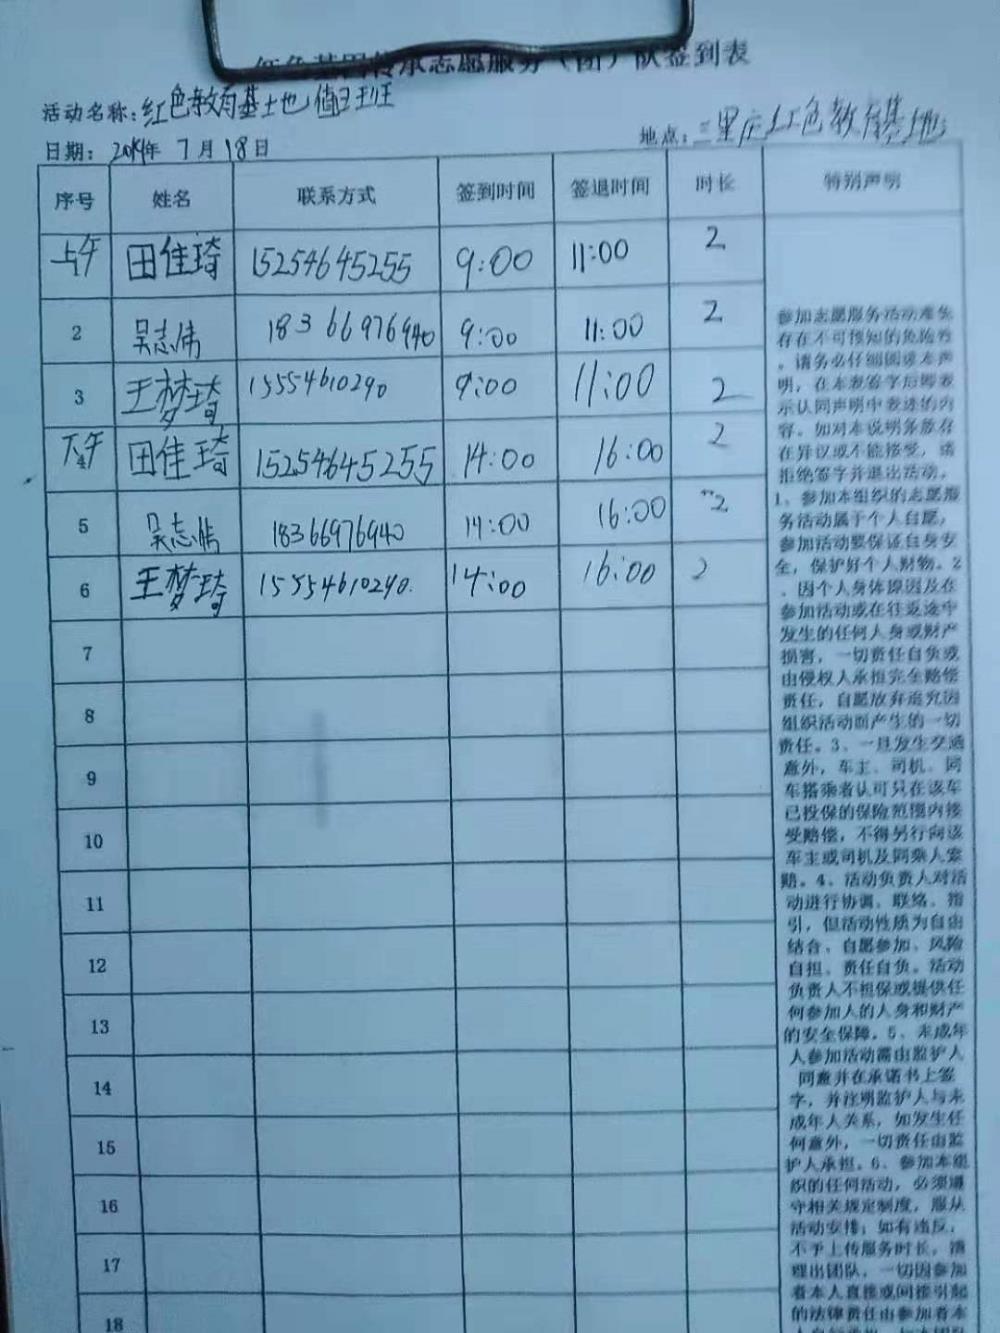 红色基因传承志愿服务（团）队签到表
活动名称：红色教育基地值班
日期： 2019年 7月18日 地点：三里庄红色教育基地
序号 姓名 联系方式 签到时间 签退时间 时长 特别声明
上午 田佳琦 15254645255 9:00 11:00 2
2 吴志伟 18366976940 9:00 11:00 2
3 王梦琦 15554610290 9:00 11:00 2
下午 4 田佳琦 15254645255 14:00 16:00 2
5 吴志伟 18366976940 14:00 16:00 2
6 王梦琦 15554610290. 14:00 16:00 2
7
8
9
10
11
12
13
14
15
16
17
18
参加志愿服务活动难免
存在不可预知的危险性
，请务必仔细阅读本声
明，在本表签字后即表
示认同声明中表述的内
容。如对本说明条款存
在异议或不能接受，请
拒绝签字并退出活动。
1、参加本组织的志愿服
务活动属于个人自愿，
参加活动要保证自身安
全，保护好个人财物。2
、因个人身体原因及在
参加活动或在往返途中
发生的任何人身或财产
损害，一切责任自负或
由侵权人承担完全赔偿
责任，自愿放弃追究因
组织活动而产生的一切
责任。3、一旦发生交通
意外，车主、司机、同
车搭乘者认可只在该车
已投保的保险范围内接
受赔偿，不得另行向该
车主或司机及同乘人索
赔。4、活动负责人对活
动进行协调、联络、指
引，但活动性质为自由
结合、自愿参加、风险
自担、责任自负。活动
负责人不担保或提供任
何参加人的人身和财产
的安全保障。5、未成年
人参加活动需由监护人
同意并在承诺书上签
字，并注明监护人与未
成年人关系，如发生任
何意外，一切责任由监
护人承担。6、参加本组
织的任何活动，必须遵
守相关规定制度，服从
活动安排；如有违反，
不予上传服务时长，清
理出团队，一切因参加
者本人直接或间接引起
的法律责任由参加者本